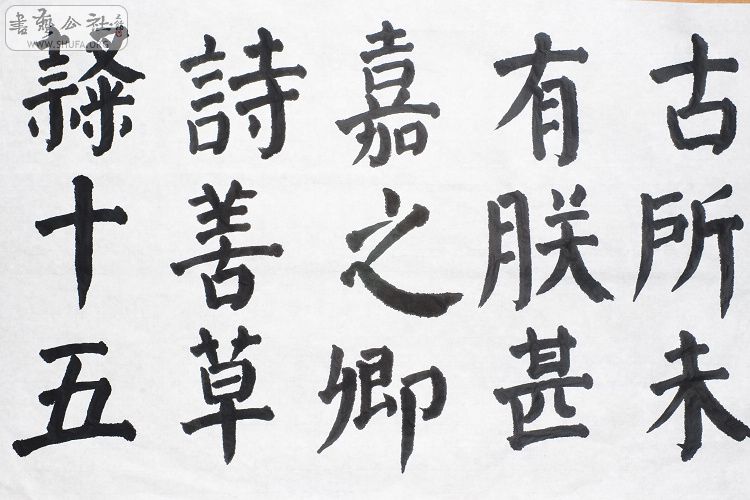 古所未
有朕甚
嘉之卿
詩善草
隸十五
書齋公社
www.SHUFA.ORG